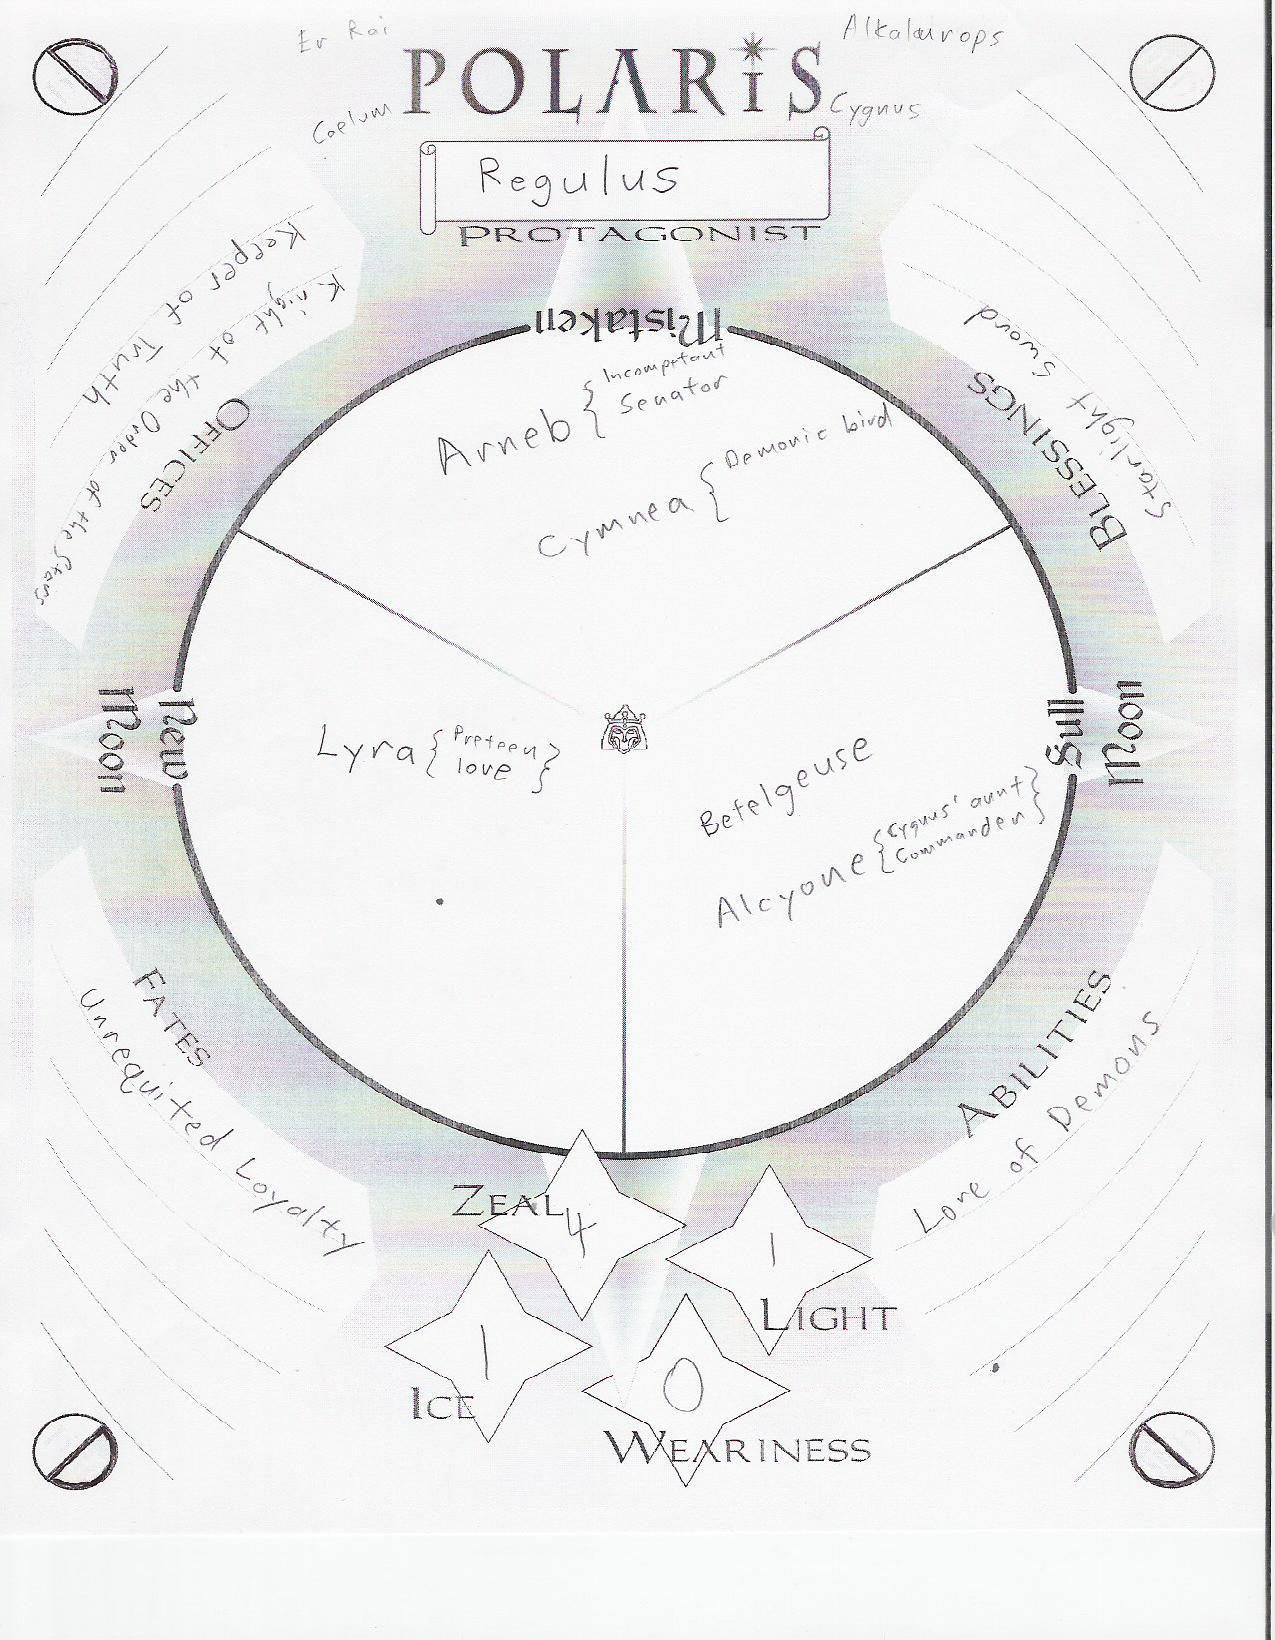 Er Rai
Alkalurops
POLARIS
Caelum
Cygnus
Regulus
PROTAGONIST
Mistaken
Keeper of Truth
Knight of the Order of the Stars
OFFICES
Starlight Sword
BLESSINGS
Arneb { Incompetant
Senator
Cymnea { Demonic bird
New
Moon
Full
Moon
Lyra { Preteen
love }
Betelgeuse
Alcyone { Cygnus' aunt
Commander }
FATES
Unrequited Loyalty
ABILITIES
Lore of Demons
ZEAL 4
1
LIGHT
1
ICE
0
WEARINESS